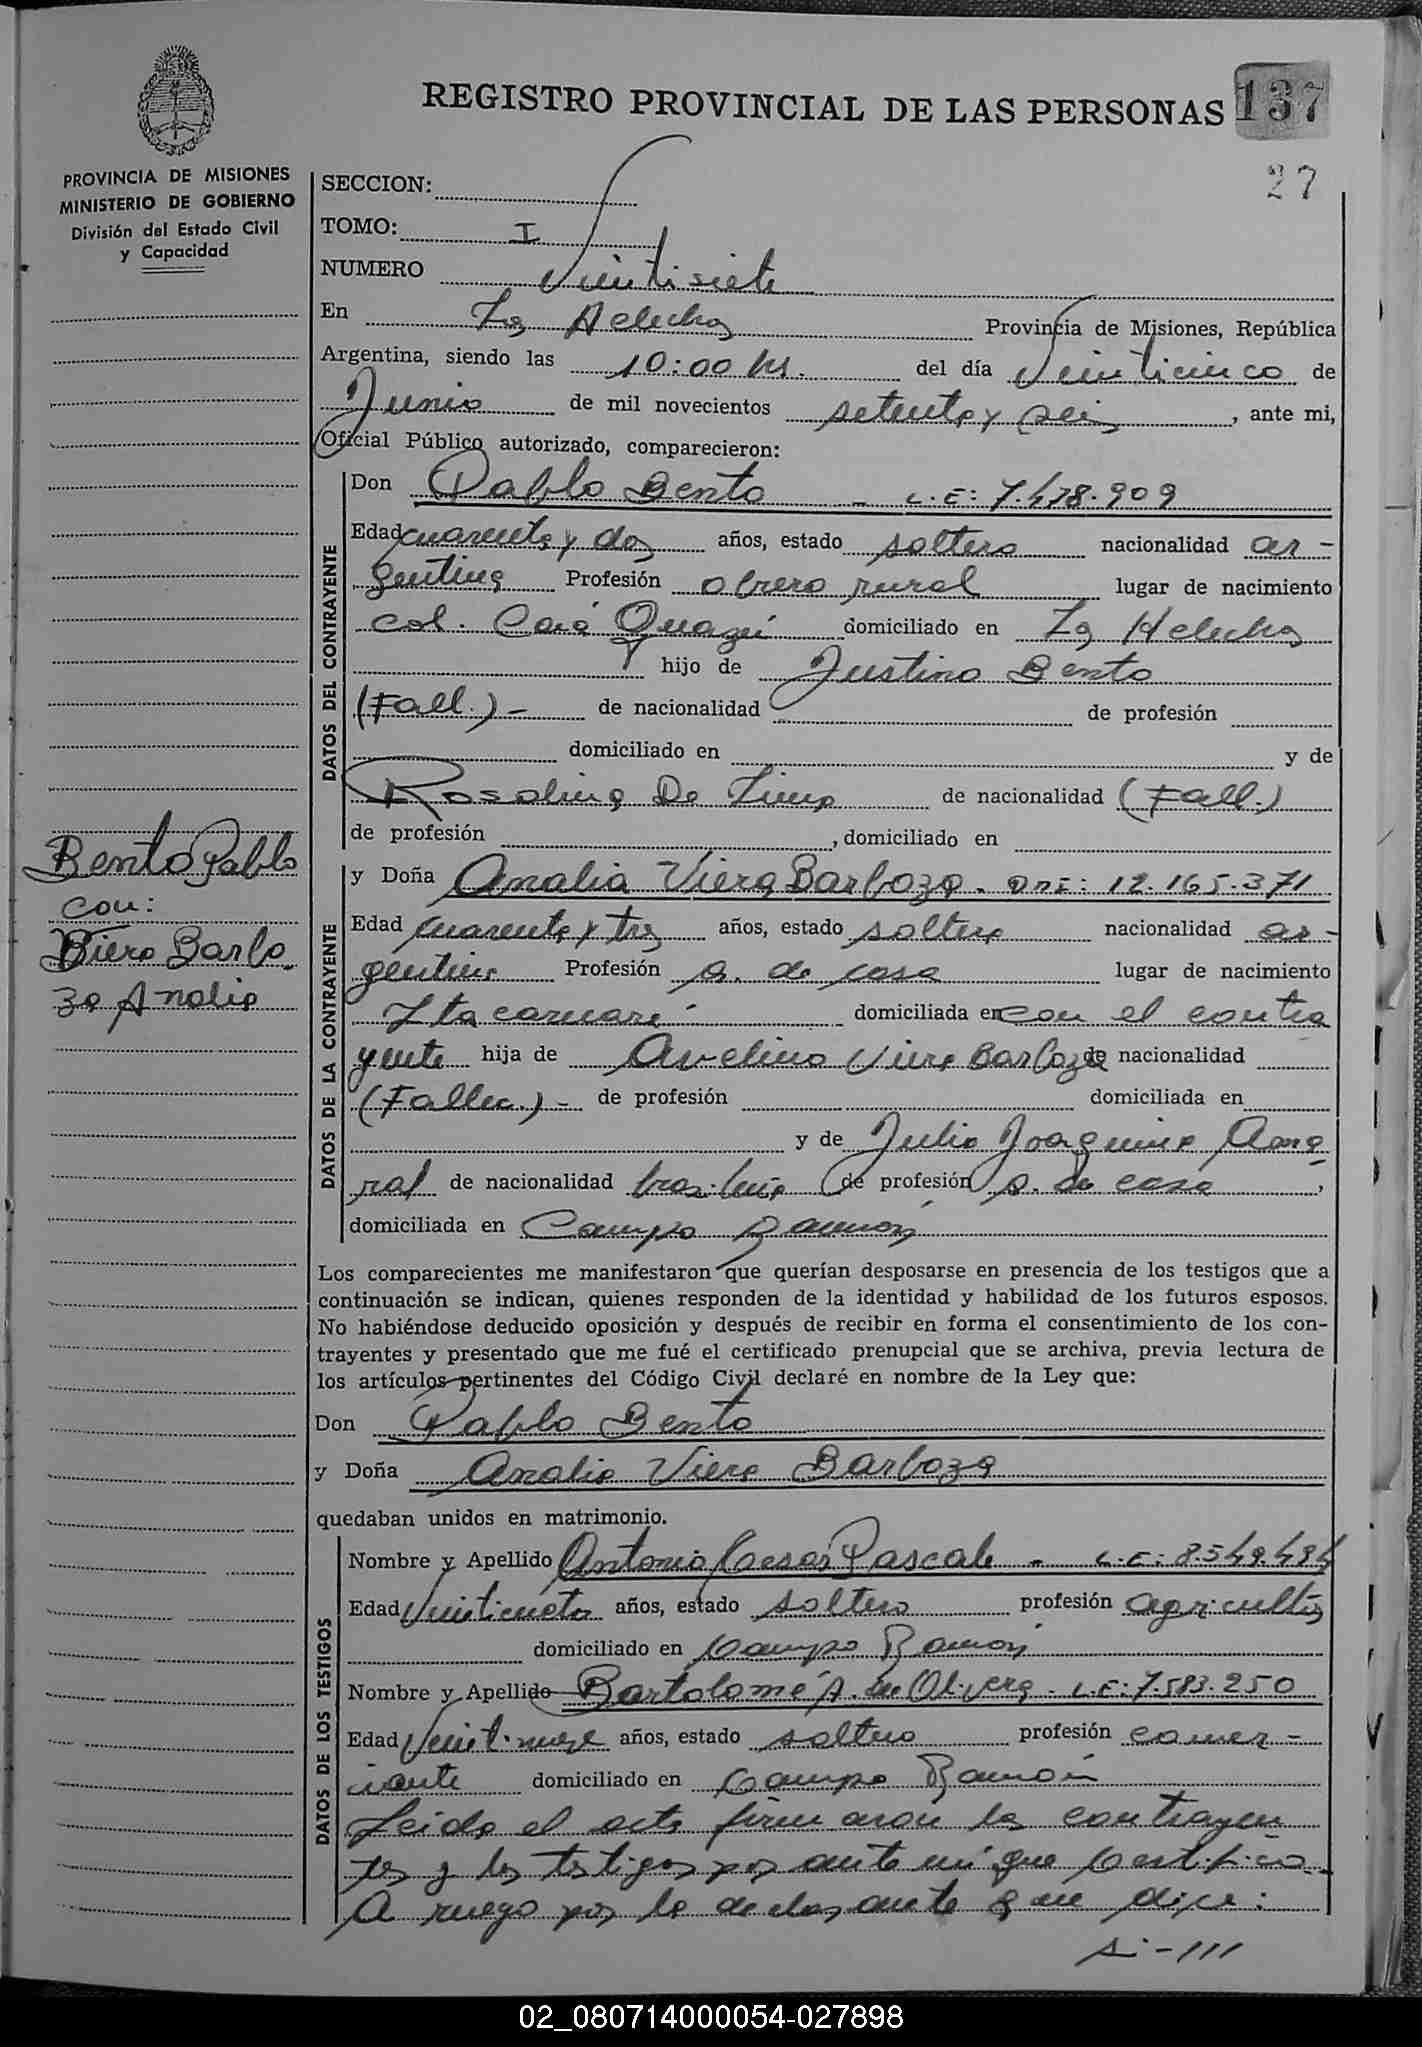 REGISTRO PROVINCIAL DE LAS PERSONAS 137
27
PROVINCIA DE MISIONES
MINISTERIO DE GOBIERNO
División del Estado Civil
y Capacidad
SECCION:
TOMO: I
NUMERO Veintisiete
En Los Helechos Provincia de Misiones, República
Argentina, siendo las 10:00 hs. del día Veinticinco de
Junio de mil novecientos setenta y seis, ante mi,
Oficial Público autorizado, comparecieron:
DATOS DEL CONTRAYENTE
Don Pablo Bento - L.E: 7.478.909
Edad cuarenta y dos años, estado soltero nacionalidad ar-
gentina Profesión obrero rural lugar de nacimiento
col. Caá Guazú domiciliado en Los Helechos
hijo de Justino Bento
(Fall.)- de nacionalidad de profesión
domiciliado en y de
Rosalina De Lima de nacionalidad (Fall.)
de profesión , domiciliado en
Bento Pablo
con:
Viera Barbo-
za Analia
DATOS DE LA CONTRAYENTE
y Doña Analia Viera Barboza. DNI: 12.165.371
Edad cuarenta y tres años, estado soltera nacionalidad ar-
gentina Profesión q. de casa lugar de nacimiento
Itacaruaré domiciliada en con el contra
yente hija de Avelino Viera Barboza de nacionalidad
(Fallec.)- de profesión domiciliada en
y de Julia Joaquina Ama
ral de nacionalidad brasileña de profesión q. de casa,
domiciliada en Campo Ramón
Los comparecientes me manifestaron que querían desposarse en presencia de los testigos que a
continuación se indican, quienes responden de la identidad y habilidad de los futuros esposos.
No habiéndose deducido oposición y después de recibir en forma el consentimiento de los con-
trayentes y presentado que me fué el certificado prenupcial que se archiva, previa lectura de
los artículos pertinentes del Código Civil declaré en nombre de la Ley que:
Don Pablo Bento
y Doña Analia Viera Barboza
quedaban unidos en matrimonio.
DATOS DE LOS TESTIGOS
Nombre y Apellido Antonio Cesar Pascale - L.E: 8.549.494
Edad años, estado soltero profesión agricultor
domiciliado en Campo Ramón
Nombre y Apellido Bartolomé A. de Olivera - L.E: 7.583.250
Edad Veintinueve años, estado soltero profesión comer-
ciante domiciliado en Campo Ramón
Leída el acta firmaron los contrayen
tes y los testigos por ante mi que certifico.
A ruego por la declarante que dice:
si-///
02_080714000054-027898